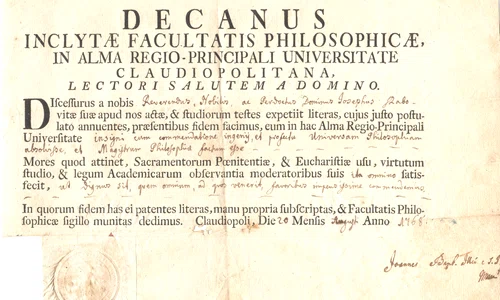 DECANUS
INCLYTÆ FACULTATIS PHILOSOPHICÆ,
IN ALMA REGIO-PRINCIPALI UNIVERSITATE
CLAUDIOPOLITANA,
LECTORI SALUTEM A DOMINO.
DIscessurus a nobis Reverendus, Nobilis, ac Perdoctus Dominus Josephus
vitæ suæ apud nos actæ, & studiorum testes expetiit literas, cujus justo postu-
lato annuentes, præsentibus fidem facimus, eum in hac Alma Regio-Principali
Universitate insigni cum commendatione ingenij, et profectu Universam Philosophiam
absolvisse, et Magistrum Philosophiæ factum esse
Mores quod attinet, Sacramentorum Pœnitentiæ, & Euchariſtiæ usu, virtutum
studio, & legum Academicarum observantia moderatoribus suis ita omnino satis-
fecit, ut dignus sit, quem omnium, ad quos venerit, favoribus impensissime commendemus
In quorum fidem has ei patentes literas, manu propria subscriptas, & Facultatis Philo-
sophicæ sigillo munitas dedimus. Claudiopoli, Die 20 Mensis Augusti Anno
Joannes Bapt.